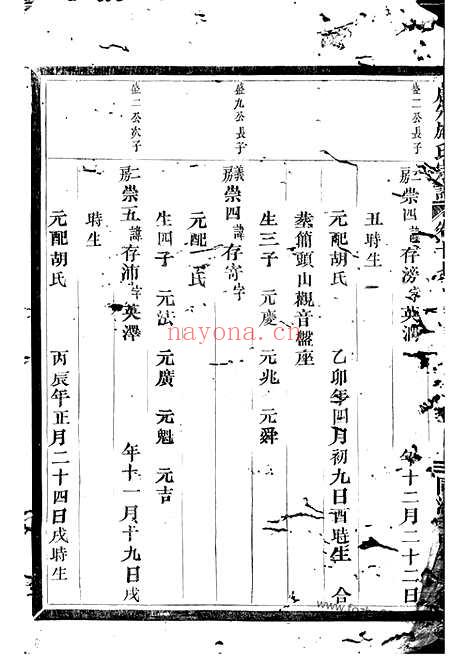 盛二公長子
二房崇四諱存滂字英 年十二月二十二日
丑時生
元配胡氏 乙卯年四月初九日酉時生 合
葬筲頭山觀音盤座
生三子 元慶 元兆 元舜
盛九公長子
義房崇四諱存寄字
元配 氏
生四子 元法 元廣 元魁 元吉
盛二公次子
仁房崇五諱存沛字英澤 年十一月十九日戌
時生
元配胡氏 丙辰年正月二十四日戌時生
nayona.cn